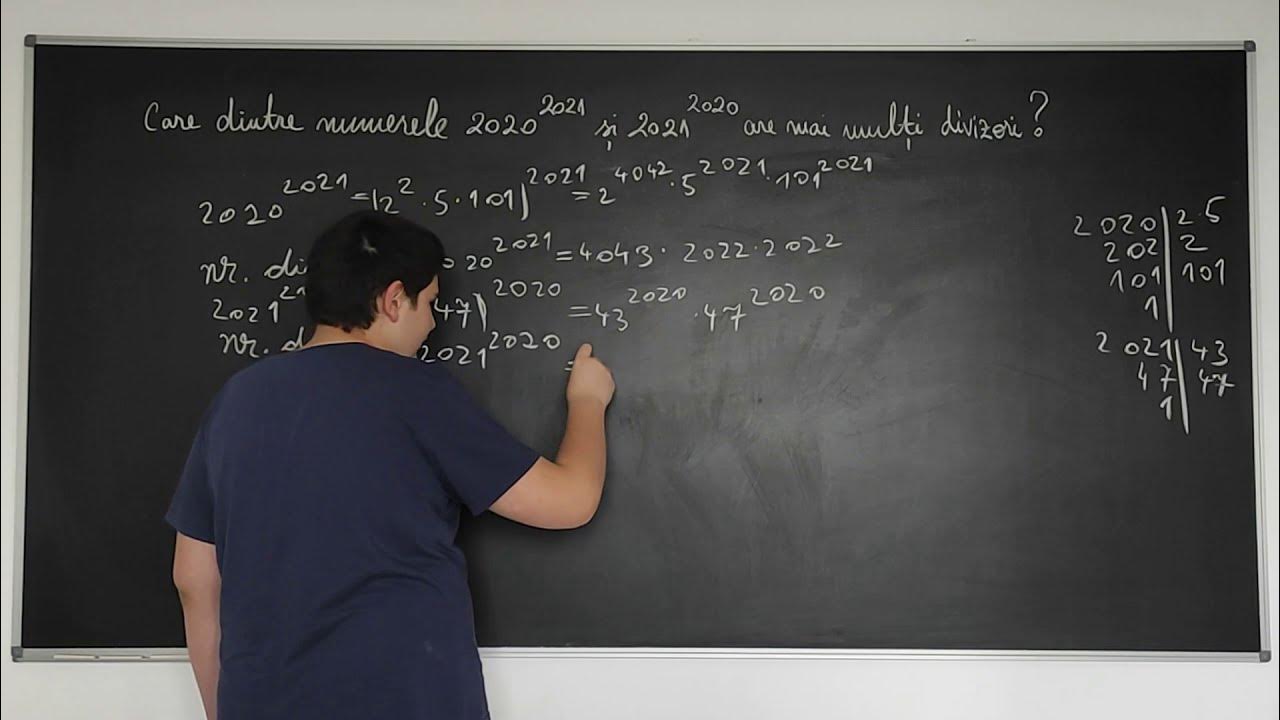 Care dintre numerele 2020^2021 și 2021^2020 are mai mulți divizori?
2020^2021 = (2^2·5·101)^2021 = 2^4042·5^2021·101^2021
nr. di 020^2021 = 4043·2022·2022
2021^2 47)^2020 = 43^2020·47^2020
nr. d 2021^2020 =
2020|2·5
202|2
101|101
1|
2021|43
47|47
1|